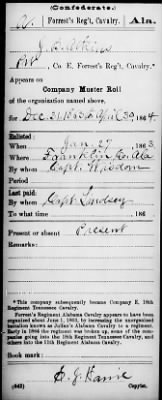 (Confederate.)
Forrest's Reg't, Cavalry. Ala.
Co. E, Forrest's Reg't, Cavalry.
Appears on
Company Muster Roll
of the organization named above,
for Dec. 31, 1863 to April 30, 1864
Enlisted:
When Jan. 27, 1863
Where Franklin Co. Ala
By whom Capt. Wisdom
Period
Last paid:
By whom Capt. Lindsey
To what time 186
Present or absent Present
Remarks:
*This company subsequently became Company E, 18th
Regiment Tennessee Cavalry.
Forrest's Regiment Alabama Cavalry appears to have been
organized about June 1, 1863, by increasing the unorganized
battalion known as Julian's Alabama Cavalry to a regiment.
Early in 1864 the regiment was broken up, some of the com-
panies going into the 18th Regiment Tennessee Cavalry, and
others into the 11th Regiment Alabama Cavalry.
Book mark:
(642) Copyist.